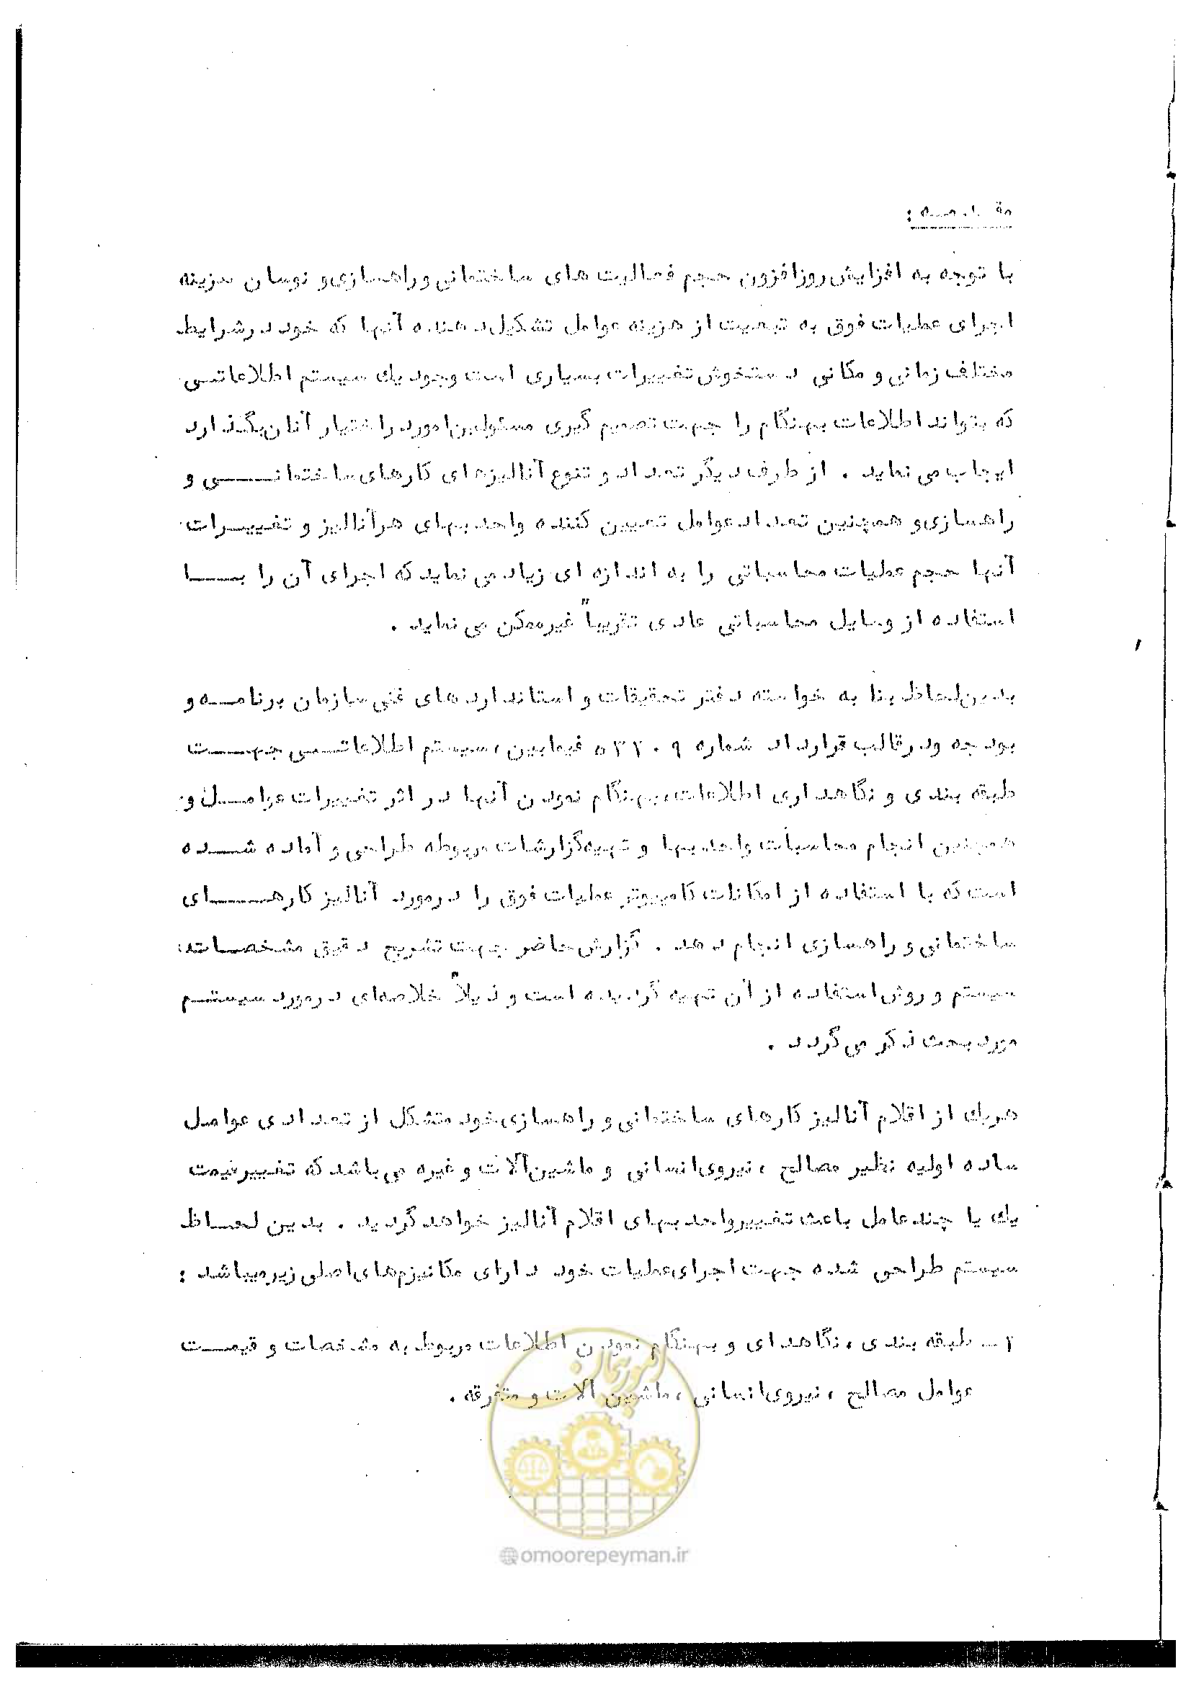 مقدمه :
با توجه به افزایش روزافزون حجم فعالیت های ساختمانی و راهسازی و نوسان هزینه
اجرای عملیات فوق به تبعیت از هزینه عوامل تشکیل دهنده آنها که خود در شرایط
مختلف زمانی و مکانی دستخوش تغییرات بسیاری است وجود یك سیستم اطلاعاتی
که بتواند اطلاعات بهنگام را جهت تصمیم گیری مسئولین امور در اختیار آنان بگذارد
ایجاب می نماید . از طرف دیگر تعداد و تنوع آنالیزهای کارهای ساختمانی و
راهسازی و همچنین تعداد عوامل تعیین کننده واحد بهای هر آنالیز و تغییرات
آنها حجم عملیات محاسباتی را به اندازه ای زیاد می نماید که اجرای آن را با
استفاده از وسایل محاسباتی عادی تقریباً غیرممکن می نماید .
بدین لحاظ بنا به خواسته دفتر تحقیقات و استانداردهای فنی سازمان برنامه و
بودجه و در قالب قرارداد شماره ۵۳۲۰۹ فیمابین ، سیستم اطلاعاتی جهت
طبقه بندی و نگاهداری اطلاعات ، بهنگام نمودن آنها در اثر تغییرات عوامل و
همچنین انجام محاسبات واحد بها و تهیه گزارشات مربوطه طراحی و آماده شده
است که با استفاده از امکانات کامپیوتر عملیات فوق را در مورد آنالیز کارهای
ساختمانی و راهسازی انجام دهد . گزارش حاضر جهت تشریح دقیق مشخصات
سیستم و روش استفاده از آن تهیه گردیده است و ذیلاً خلاصه‌ای در مورد سیستم
مورد بحث ذکر می گردد .
هریك از اقلام آنالیز کارهای ساختمانی و راهسازی خود متشکل از تعدادی عوامل
ساده اولیه نظیر مصالح ، نیروی انسانی و ماشین آلات و غیره می باشد که تغییر قیمت
یك یا چند عامل باعث تغییر واحد بهای اقلام آنالیز خواهد گردید . بدین لحاظ
سیستم طراحی شده جهت اجرای عملیات خود دارای مکانیزم‌های اصلی زیر میباشد :
۱ ـ طبقه بندی ، نگاهدای و بهنگام نمودن اطلاعات مربوط به مشخصات و قیمت
عوامل مصالح ، نیروی انسانی ، ماشین آلات و متفرقه .
امور پیمان
@omoorepeyman.ir